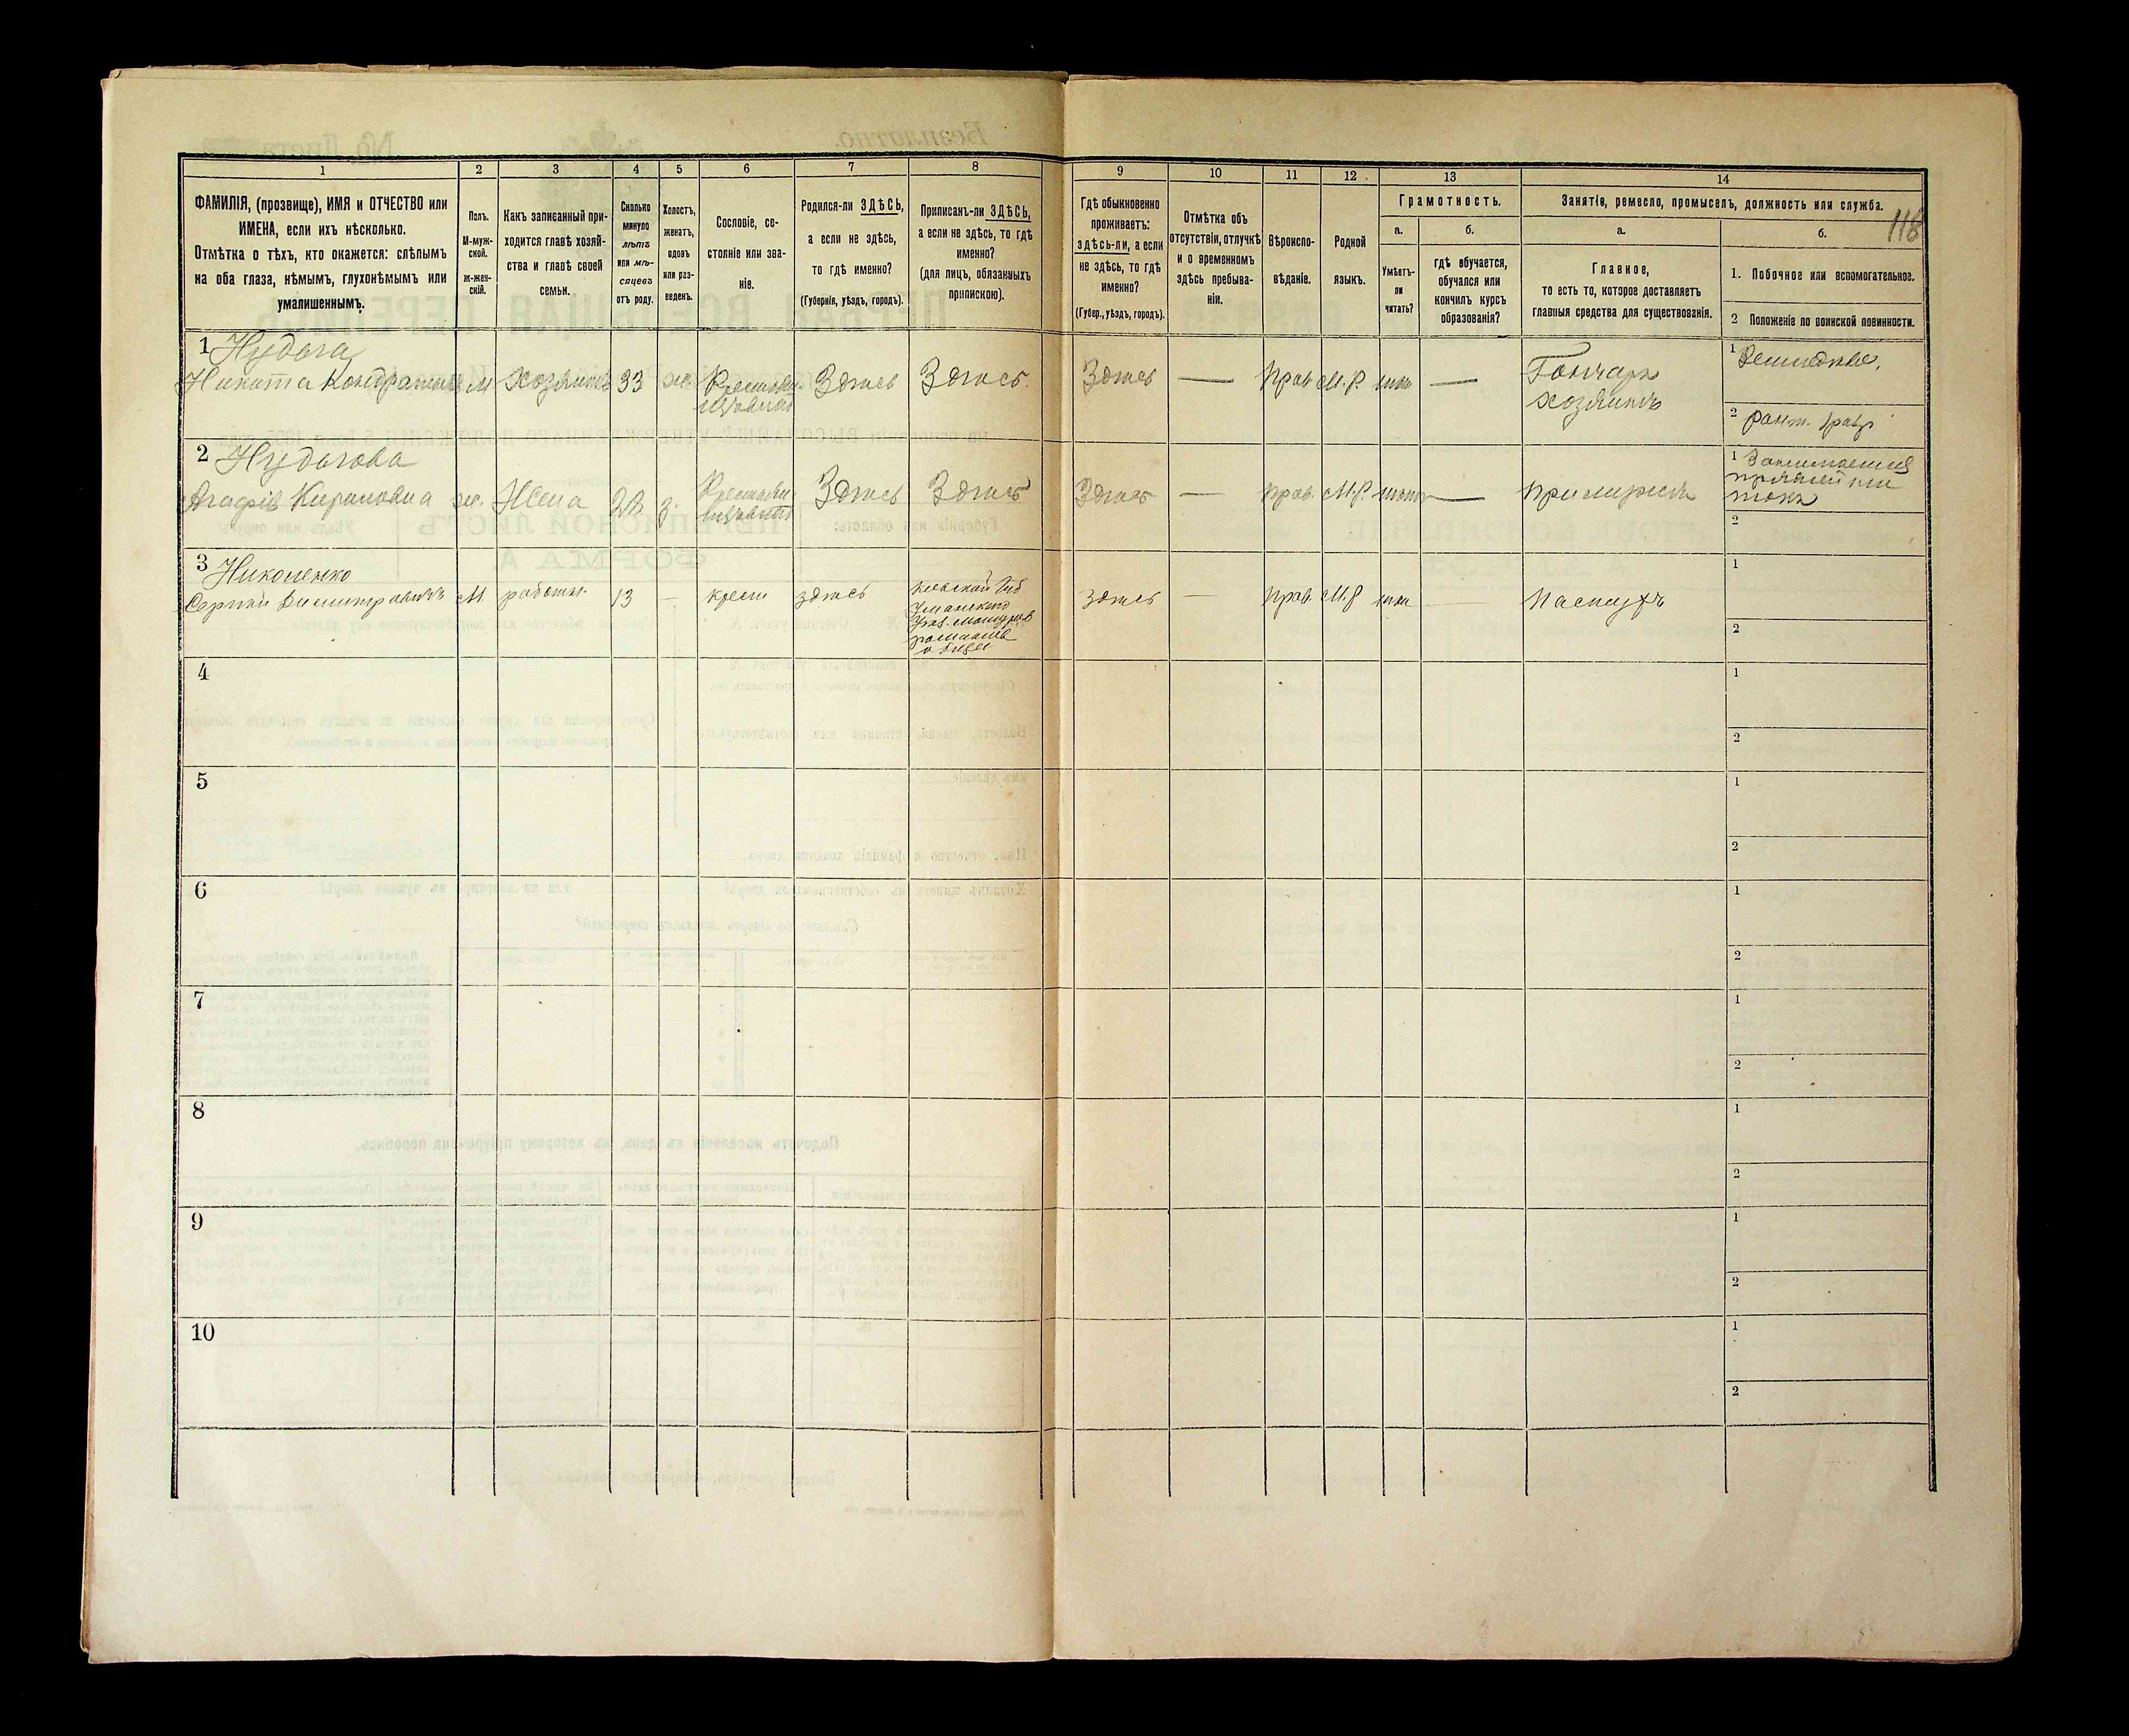 118
1 2 3 4 5 6 7 8 9 10 11 12 13 14
ФАМИЛІЯ, (прозвище), ИМЯ и ОТЧЕСТВО или
ИМЕНА, если ихъ нѣсколько.
Отмѣтка о тѣхъ, кто окажется: слѣпымъ
на оба глаза, нѣмымъ, глухонѣмымъ или
умалишеннымъ.
Полъ.
М-муж-
ской.
ж-жен-
скій.
Какъ записанный при-
ходится главѣ хозяй-
ства и главѣ своей
семьи.
Сколько
минуло
лѣтъ
или мѣ-
сяцевъ
отъ роду.
Холостъ,
женатъ,
вдовъ
или раз-
веденъ.
Сословіе, со-
стояніе или зва-
ніе.
Родился-ли ЗДѢСЬ,
а если не здѣсь,
то гдѣ именно?
(Губернія, уѣздъ, городъ).
Приписанъ-ли ЗДѢСЬ,
а если не здѣсь, то гдѣ
именно?
(для лицъ, обязанныхъ
припискою).
Гдѣ обыкновенно
проживаетъ:
здѣсь-ли, а если
не здѣсь, то гдѣ
именно?
(Губер., уѣздъ, городъ).
Отмѣтка объ
отсутствіи, отлучкѣ
и о временномъ
здѣсь пребыва-
ніи.
Вѣроиспо-
вѣданіе.
Родной
языкъ.
Грамотность.
а.
Умѣетъ-
ли
читать?
б.
гдѣ обучается,
обучался или
кончилъ курсъ
образованія?
Занятіе, ремесло, промыселъ, должность или служба.
а.
Главное,
то есть то, которое доставляетъ
главныя средства для существованія.
б.
1. Побочное или вспомогательное.
2 Положеніе по воинской повинности.
1 Нудьга
Никита Кондратьевъ м хозяинъ 33 ж. Здѣсь Здѣсь Здѣсь — Прав М.Р. —
Гончаръ
хозяинъ
1 Земледѣліе.
2
2 Нудьгова
Агафія Кириловна ж. Жена 28 з. Здѣсь Здѣсь Здѣсь — прав. М.Р. —
1 Занимается
2
3 Николенко
Сергѣй Димитровичъ М. работн. 13 — крест здѣсь
Кіевской Губ
Уманскаго
здѣсь — прав. М.Р — Пастухъ
1
2
4
1
2
5
1
2
6
1
2
7
1
2
8
1
2
9
1
2
10
1
2